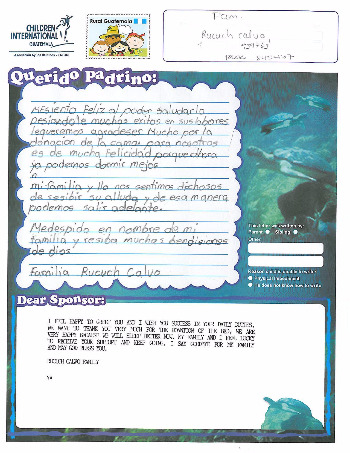 CHILDREN
INTERNATIONAL
GUATEMALA
Rural Guatemala
Rucuch calvo
Querido Padrino:
Mesiento Feliz al poder saludarlo
deseandole muchas exitos en sus labores
lequeremos agradeser Mucho por la
donacion de la cama para nosotros
es de mucha Felicidad porque ahora
ya podemos dormir mejor
mi familia y llo nos sentimos dichosos
de resibir su alluda y de esa manera
podemos salir adelante.
Medespido en nombre de mi
familia y resiba muchas bendisiones
de dios.
Familia Rucuch Calvo
Dear Sponsor:
I FEEL HAPPY TO GREET YOU AND I WISH YOU SUCCESS IN YOUR DAILY DUTIES,
WE WANT TO THANK YOU VERY MUCH FOR THE DONATION OF THE BED, WE ARE
VERY HAPPY BECAUSE WE WILL SLEEP BETTER NOW. MY FAMILY AND I FEEL LUCKY
TO RECEIVE YOUR SUPPORT AND KEEP GOING, I SAY GOODBYE FOR MY FAMILY
AND MAY GOD BLESS YOU.
RUCUCH CALVO FAMILY
Parent Sibling
Other
Physical Impairment
Does not know how to write